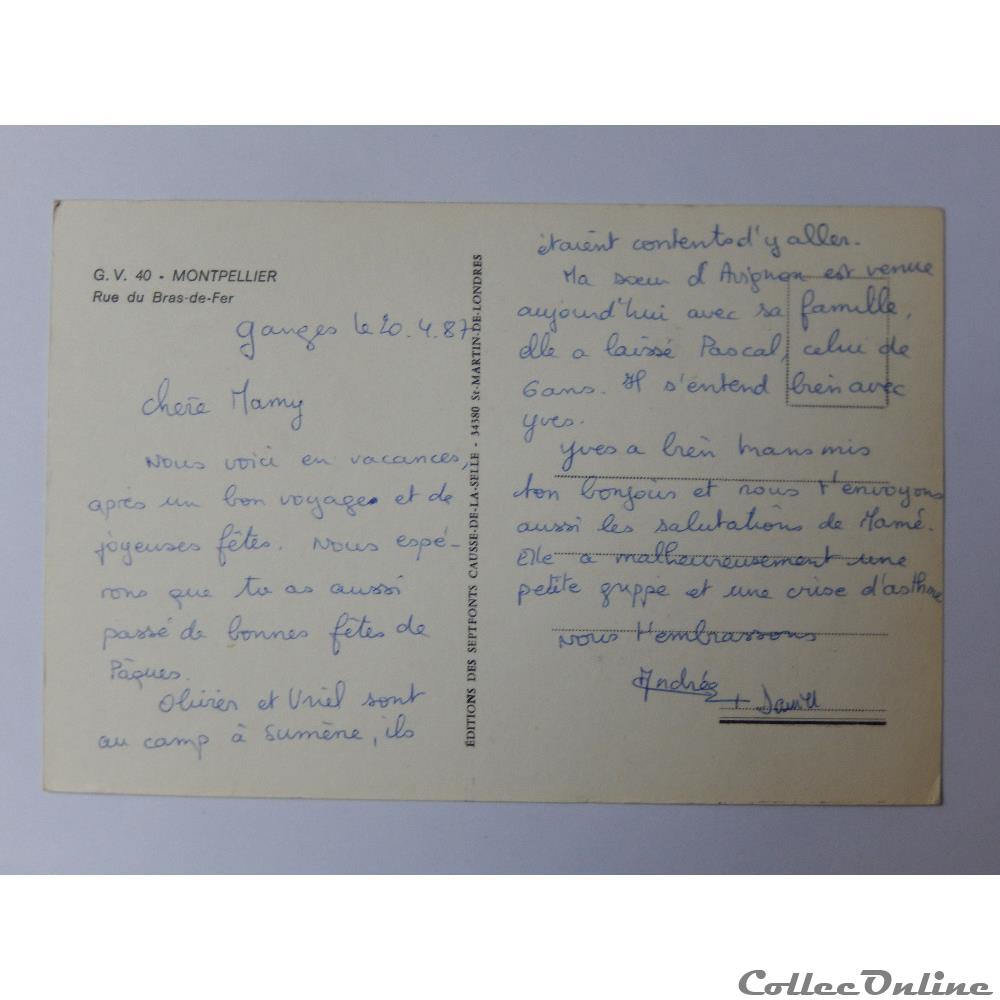 G. V. 40 - MONTPELLIER
Rue du Bras-de-Fer
Ganges le 20.4.87
Chère Mamy
Nous voici en vacances,
après un bon voyage et de
joyeuses fêtes. Nous espé-
rons que tu as aussi
passé de bonnes fêtes de
Pâques.
Olivier et Uriel sont
au camp à Sumène, ils
ÉDITIONS DES SEPTFONTS CAUSSE-DE-LA-SELLE - 34380 St-MARTIN-DE-LONDRES
étaient contents d'y aller.
Ma sœur d'Avignon est venue
aujourd'hui avec sa famille,
elle a laissé Pascal, celui de
6 ans. Il s'entend bien avec
Yves.
Yves a bien transmis
ton bonjour et nous t'envoyons
aussi les salutations de Mamé.
Elle a malheureusement une
petite grippe et une crise d'asthme
Nous t'embrassons
Andrée + Daniel
CollecOnline